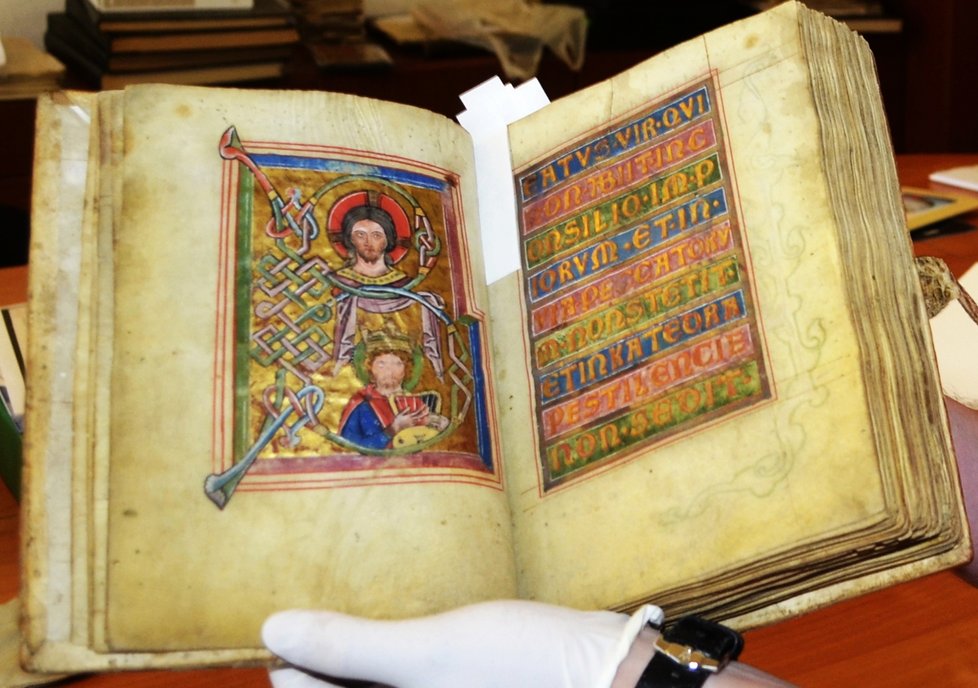 B
EATVS·VIR·QVI
NON ABIIT INC
ONSILIO·IM·P
IORVM·ET·IN·
VIA PECCATORV
M·NON STETIT·
ET IN KATEDRA
PESTILENCIE
NON·SEDIT: